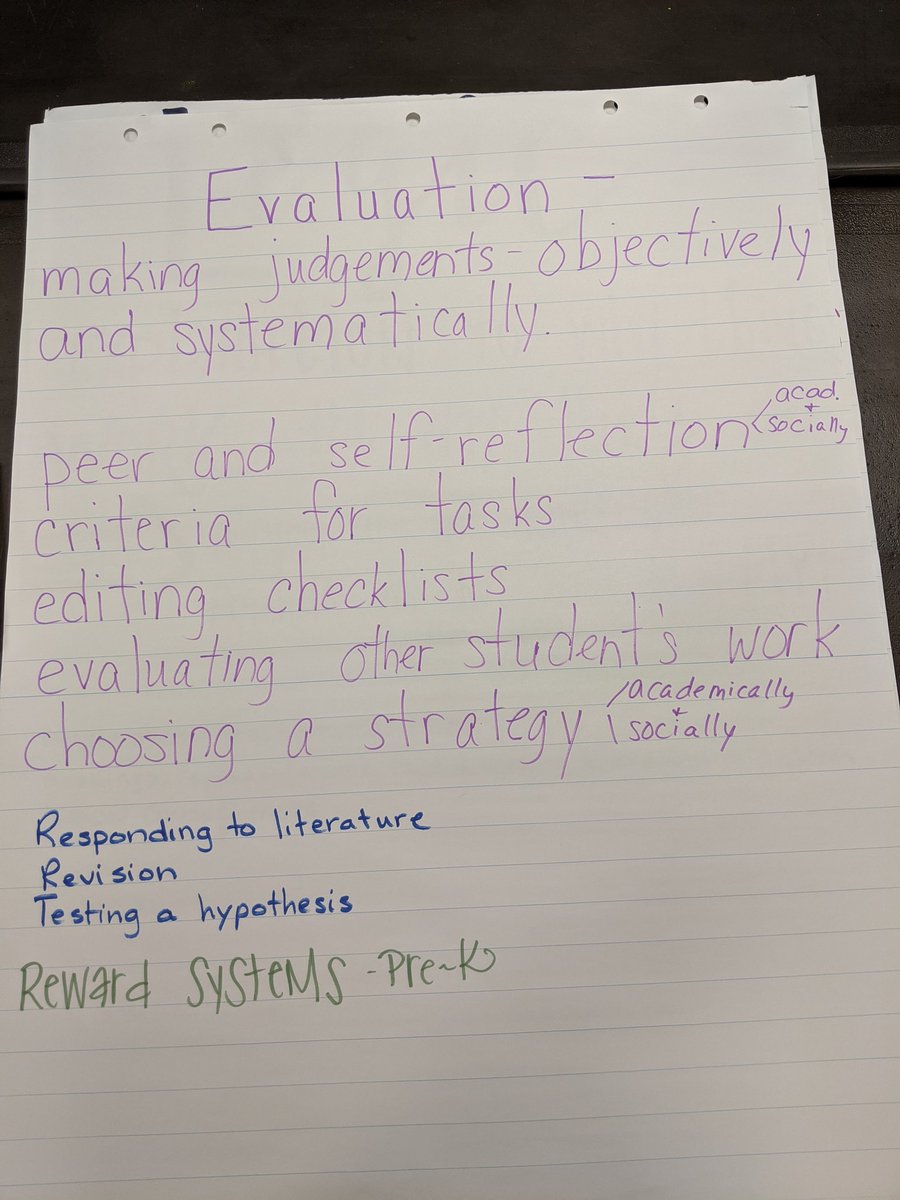 Evaluation -
making judgements - objectively
and systematically.
peer and self-reflection < acad. + socially
criteria for tasks
editing checklists
evaluating other student's work
choosing a strategy / academically + \ socially
Responding to literature
Revision
Testing a hypothesis
Reward Systems - Pre-K